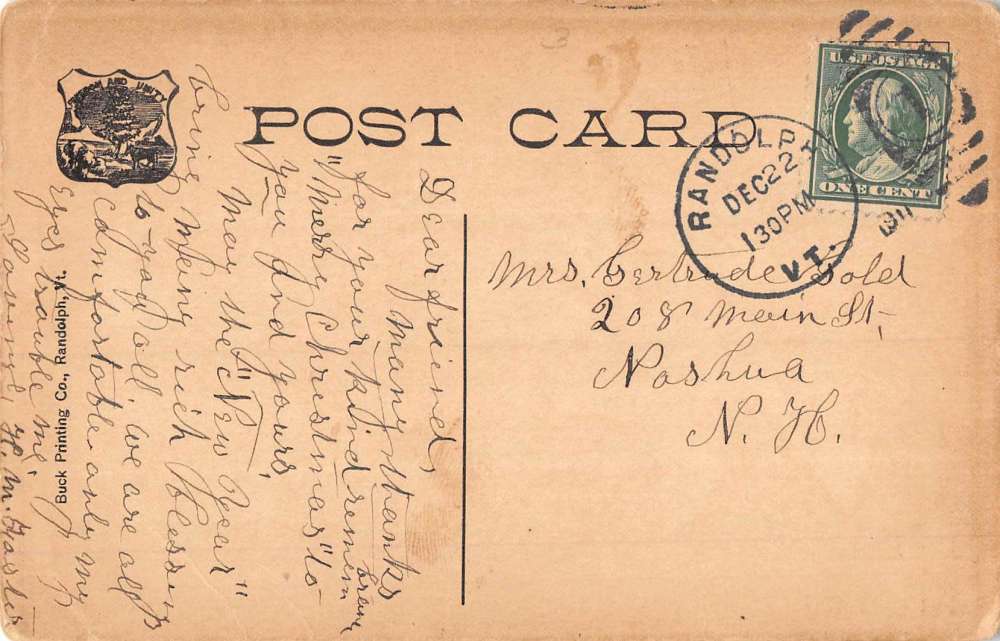 POST CARD
FREEDOM AND UNITY
U.S. POSTAGE
ONE CENT
RANDOLPH
DEC 22
130 PM
VT.
1911
Mrs. Gertrude Gold
208 Main St,
Nashua
N. H.
Dear friend,
Many thanks
for your kind remem
brance
"Merry Christmas" to
you and yours,
May the "New Year"
bring many rich blessings
to you all, we are all
comfortable only my
Eyes trouble me,
Loving, H. M.
Buck Printing Co., Randolph, Vt.